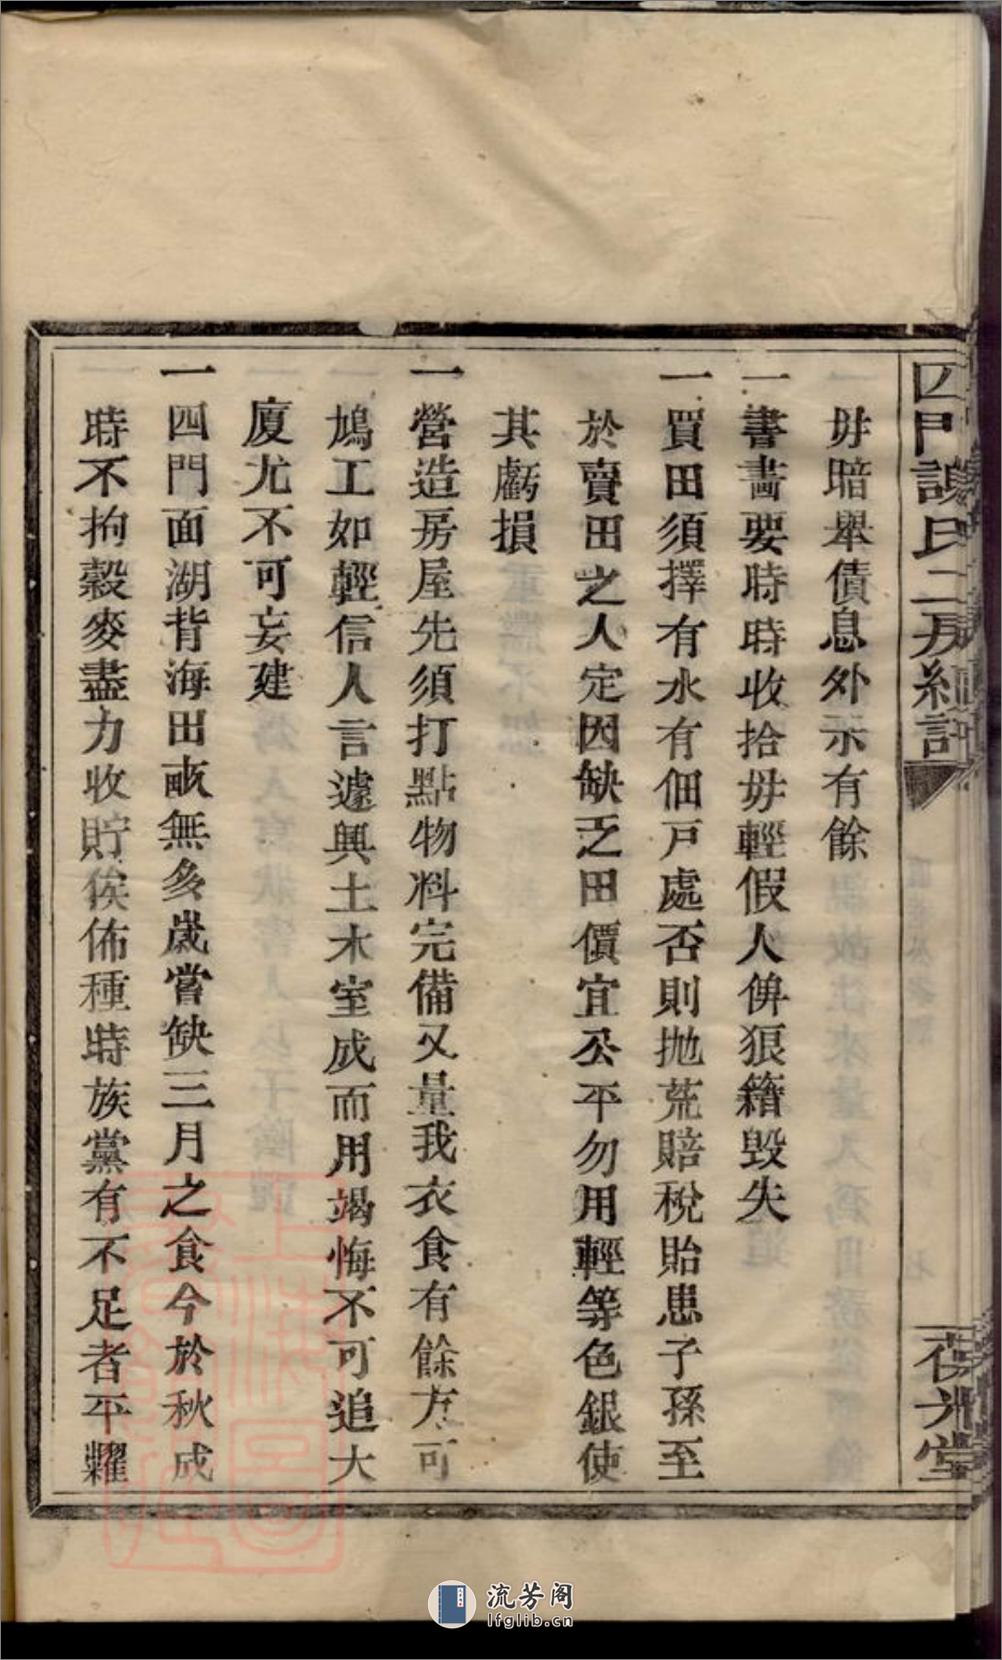 四門謝氏二房續譜
葆光堂
毋暗舉債息外示有餘
一書畵要時時收拾毋輕假人俾狼籍毁失
一買田須擇有水有佃戸處否則抛荒賠稅貽患子孫至
於賣田之人定因缺乏田價宜公平勿用輕等色銀使
其虧損
一營造房屋先須打點物料完備又量我衣食有餘方可
鳩工如輕信人言遽興土木室成而用竭悔不可追大
廈尤不可妄建
一四門面湖背海田畝無多歲嘗缺三月之食今於秋成
時不拘穀麥盡力收貯俟佈種時族黨有不足者平糶
上海圖書館藏
流芳阁
lfglib.cn